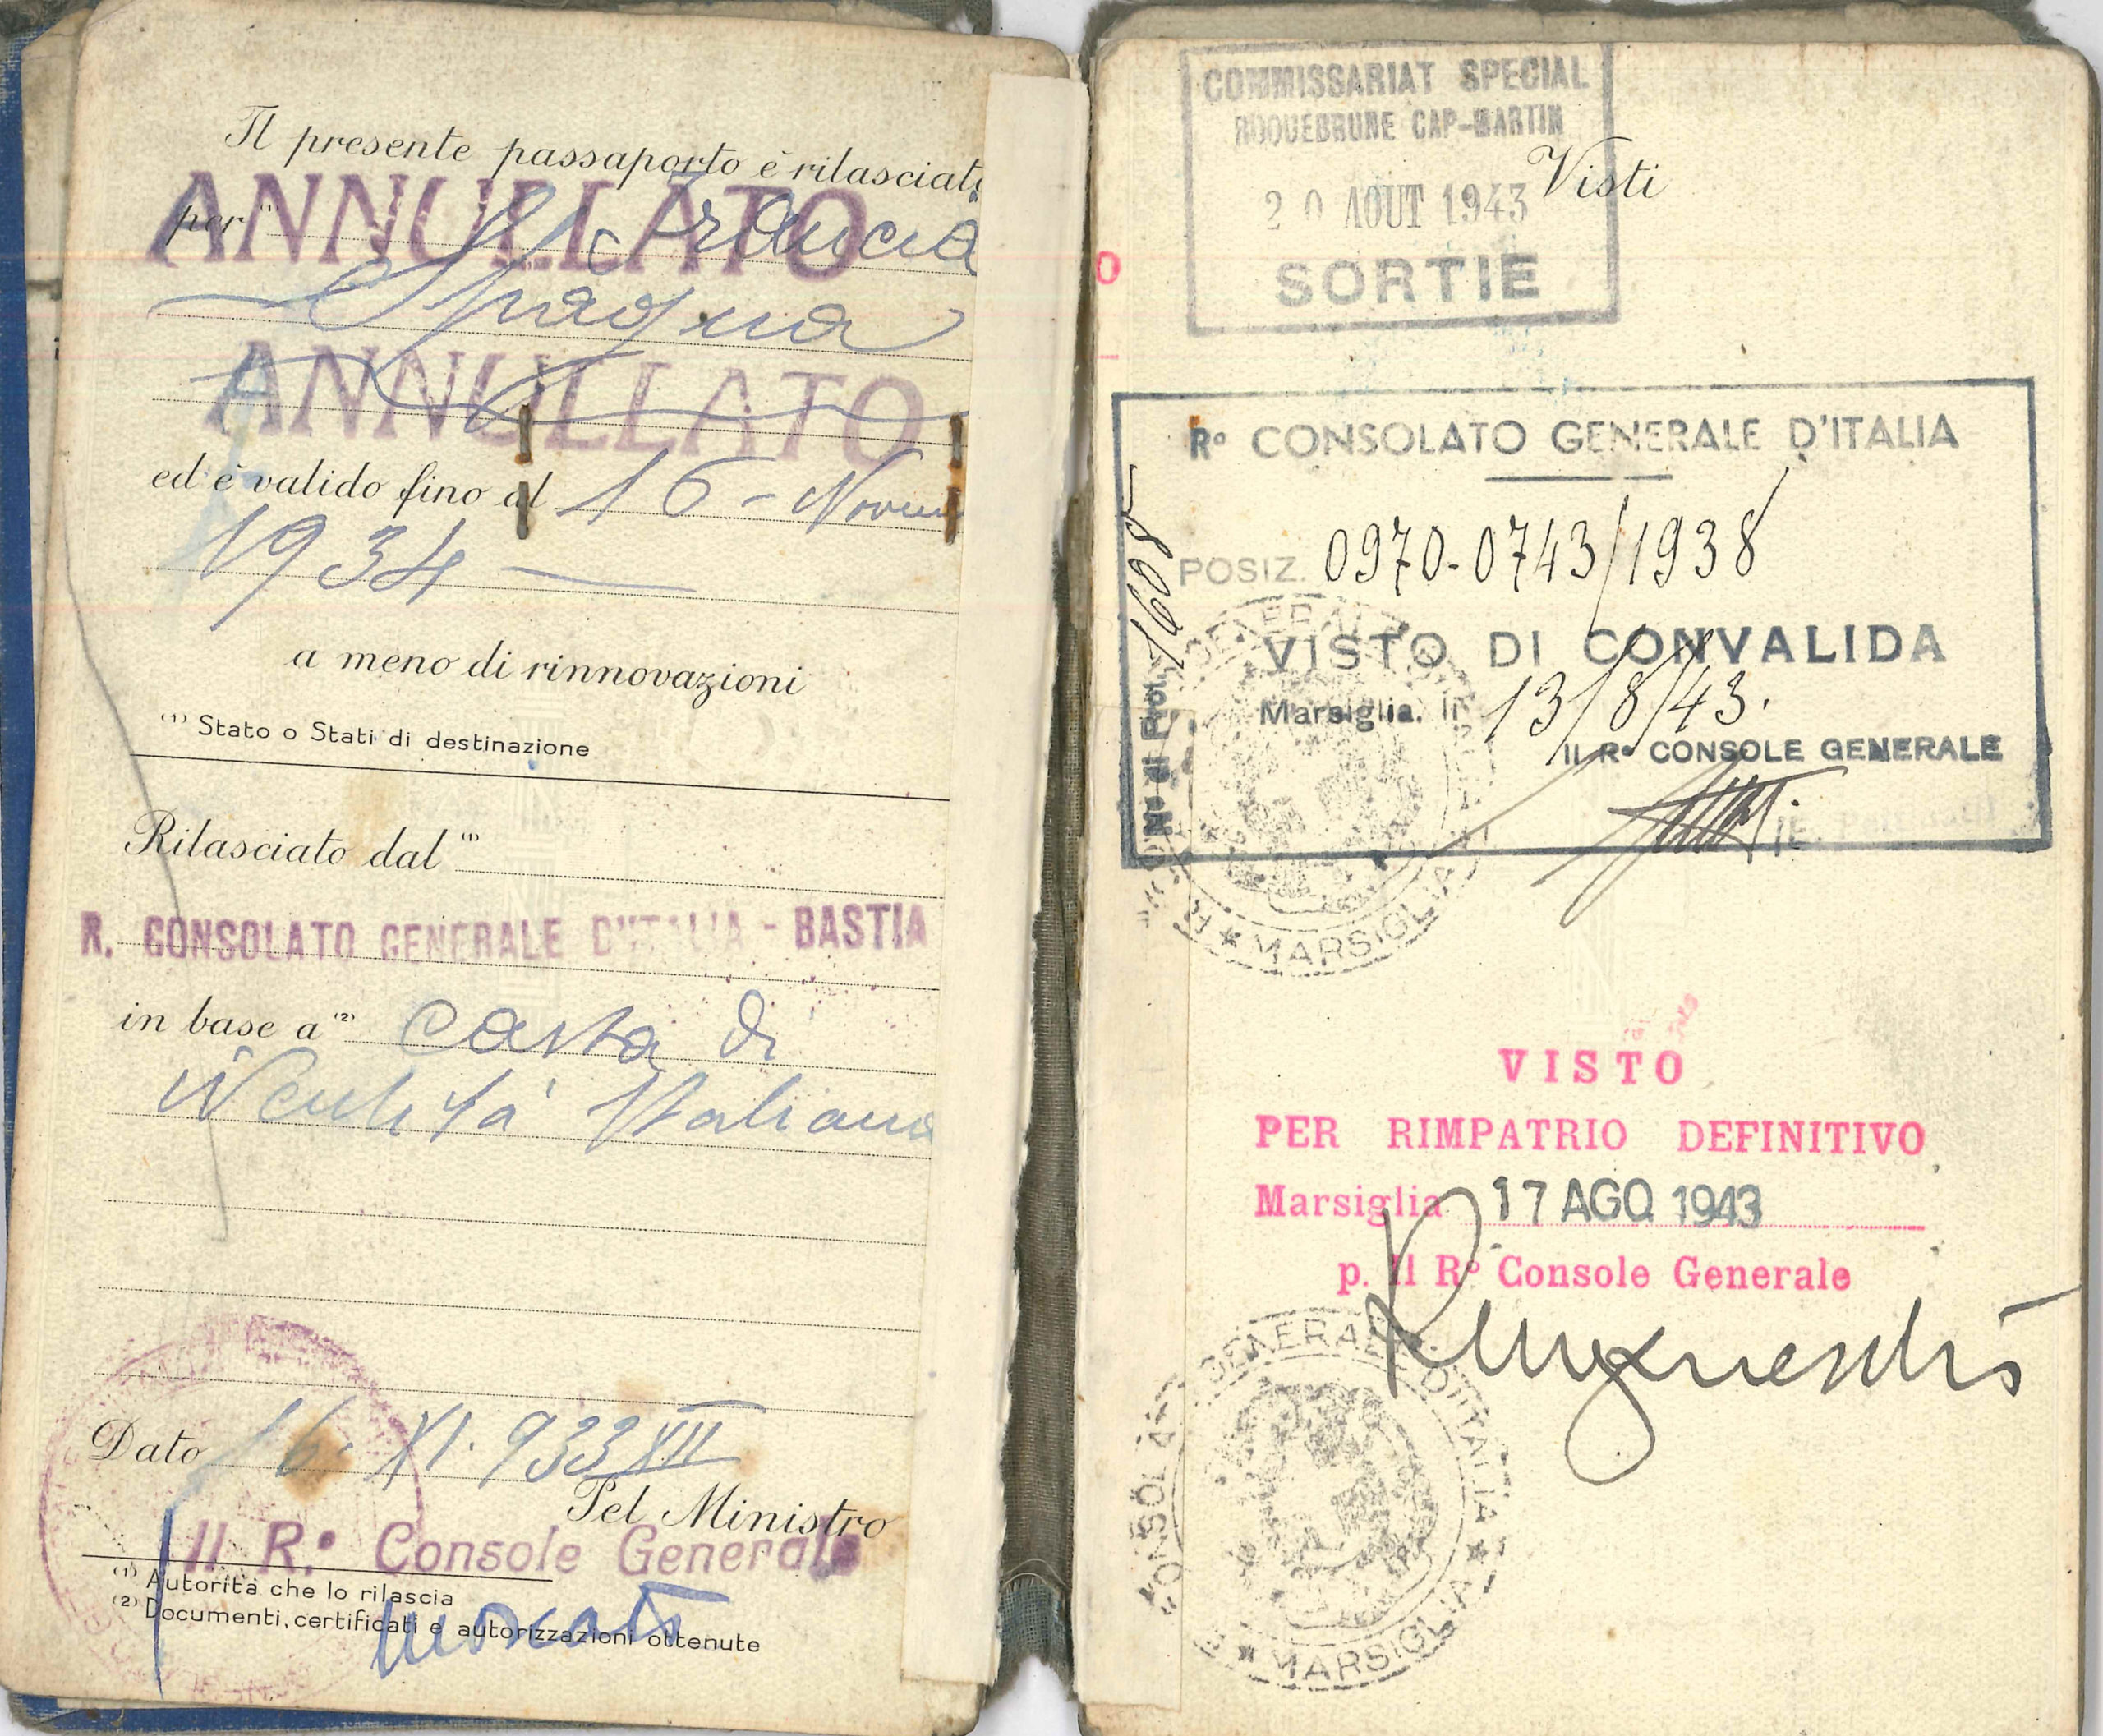 Il presente passaporto è rilasciato
per (1) la Francia
ANNULLATO
Spagna
ANNULLATO
ed è valido fino al 16 - Novem
1934
a meno di rinnovazioni
(1) Stato o Stati di destinazione
Rilasciato dal (1)
R. CONSOLATO GENERALE D'ITALIA - BASTIA
in base a (2) carta di
Italiana
Dato 16. XI. 933 XII
Pel Ministro
Il R.º Console Generale
(1) Autorità che lo rilascia
(2) Documenti, certificati e autorizzazioni ottenute
COMMISSARIAT SPECIAL
ROQUEBRUNE CAP-MARTIN
Visti
20 AOUT 1943
SORTIE
Rº CONSOLATO GENERALE D'ITALIA
POSIZ. 0970-0743/1938
Nº di Prot. 1608
VISTO DI CONVALIDA
Marsiglia. li 13/8/43.
Il Rº CONSOLE GENERALE
GENERALE D'ITALIA ★ MARSIGLIA ★
VISTO
PER RIMPATRIO DEFINITIVO
Marsiglia 17 AGO 1943
p. Il Rº Console Generale
CONSOLATO GENERALE D'ITALIA ★ MARSIGLIA ★